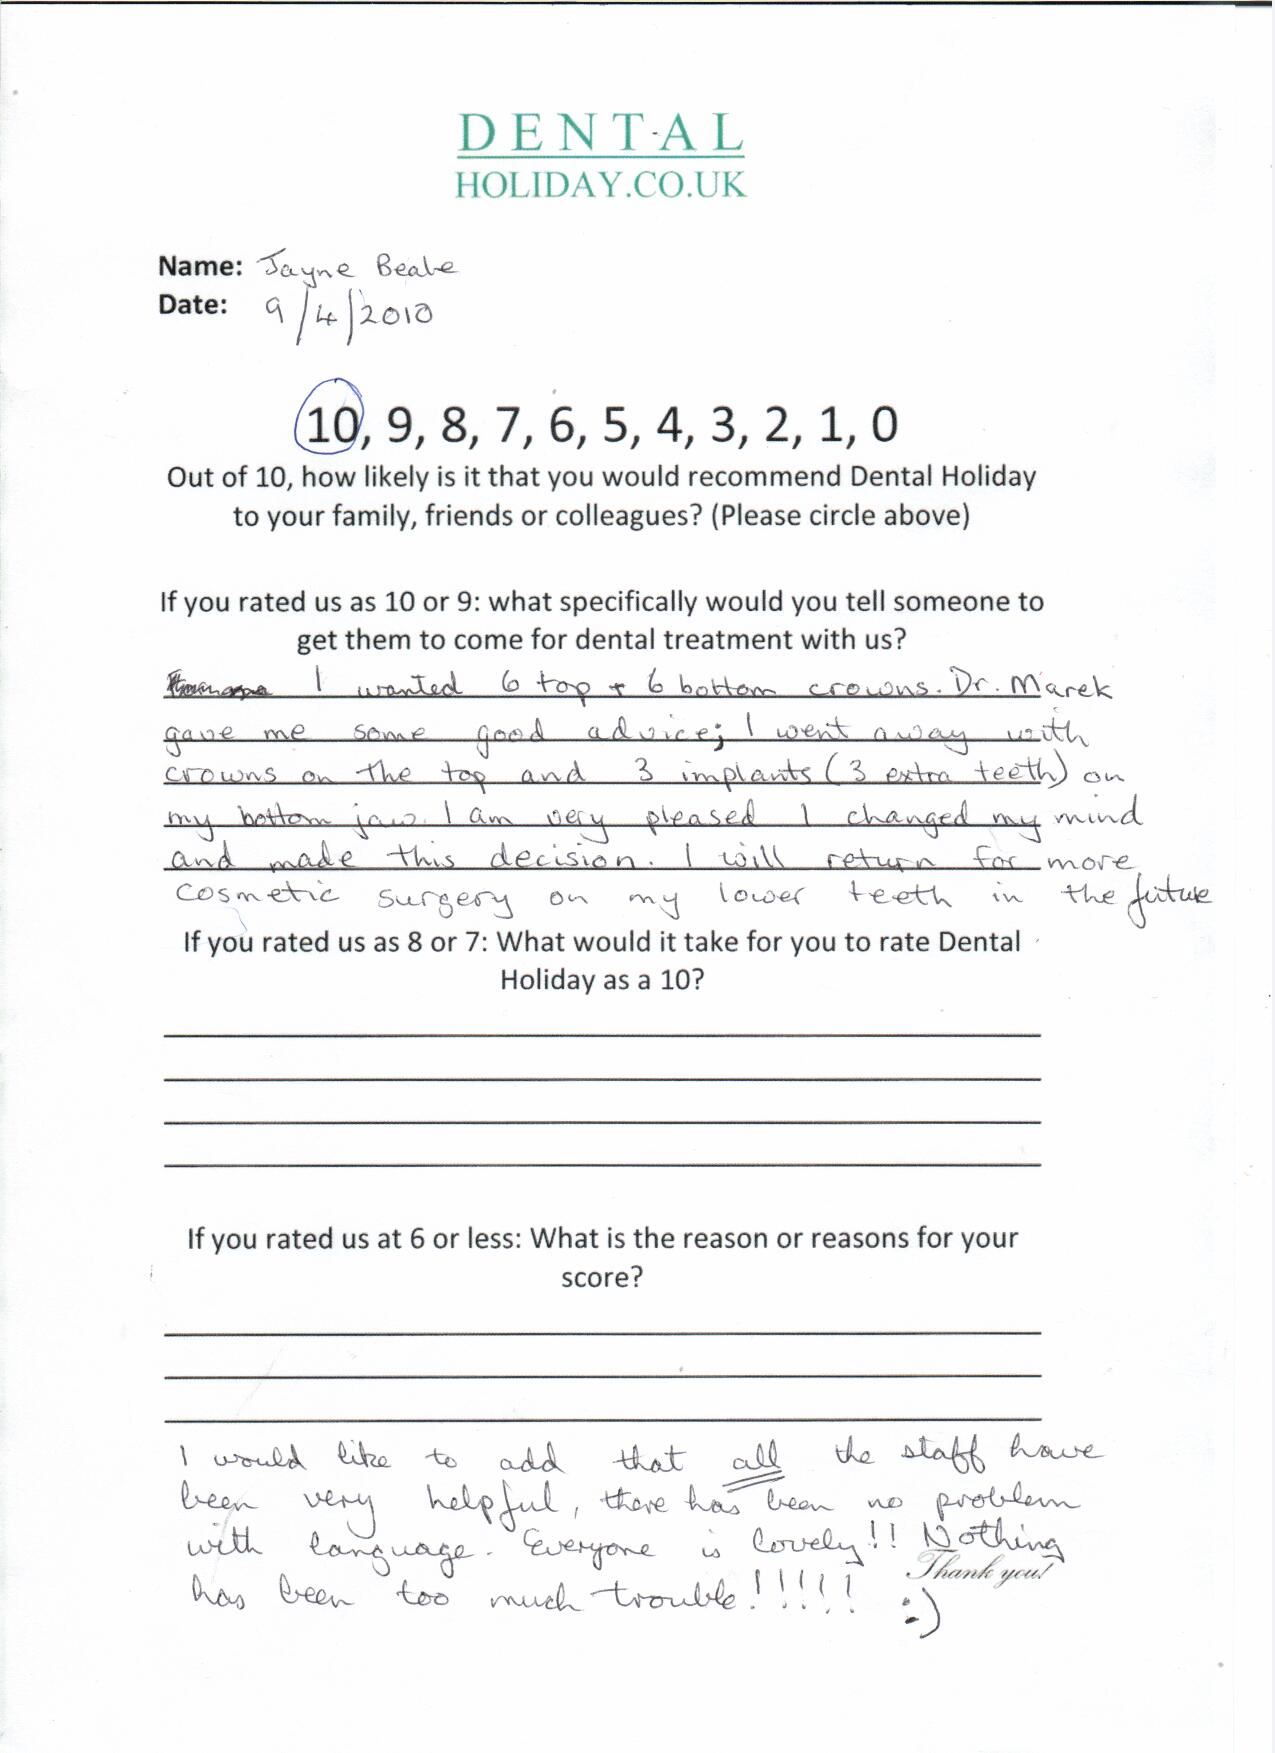 DENTAL
HOLIDAY.CO.UK
Name: Jayne Beale
Date: 9/4/2010
10, 9, 8, 7, 6, 5, 4, 3, 2, 1, 0
Out of 10, how likely is it that you would recommend Dental Holiday
to your family, friends or colleagues? (Please circle above)
If you rated us as 10 or 9: what specifically would you tell someone to
get them to come for dental treatment with us?
I wanted 6 top + 6 bottom crowns. Dr. Marek
gave me some good advice; I went away with
crowns on the top and 3 implants (3 extra teeth) on
my bottom jaw. I am very pleased I changed my mind
and made this decision. I will return for more
cosmetic surgery on my lower teeth in the future
If you rated us as 8 or 7: What would it take for you to rate Dental
Holiday as a 10?
If you rated us at 6 or less: What is the reason or reasons for your
score?
I would like to add that all the staff have
been very helpful, there has been no problem
with language. Everyone is lovely!! Nothing
Thank you!
has been too much trouble!!!!! :-)